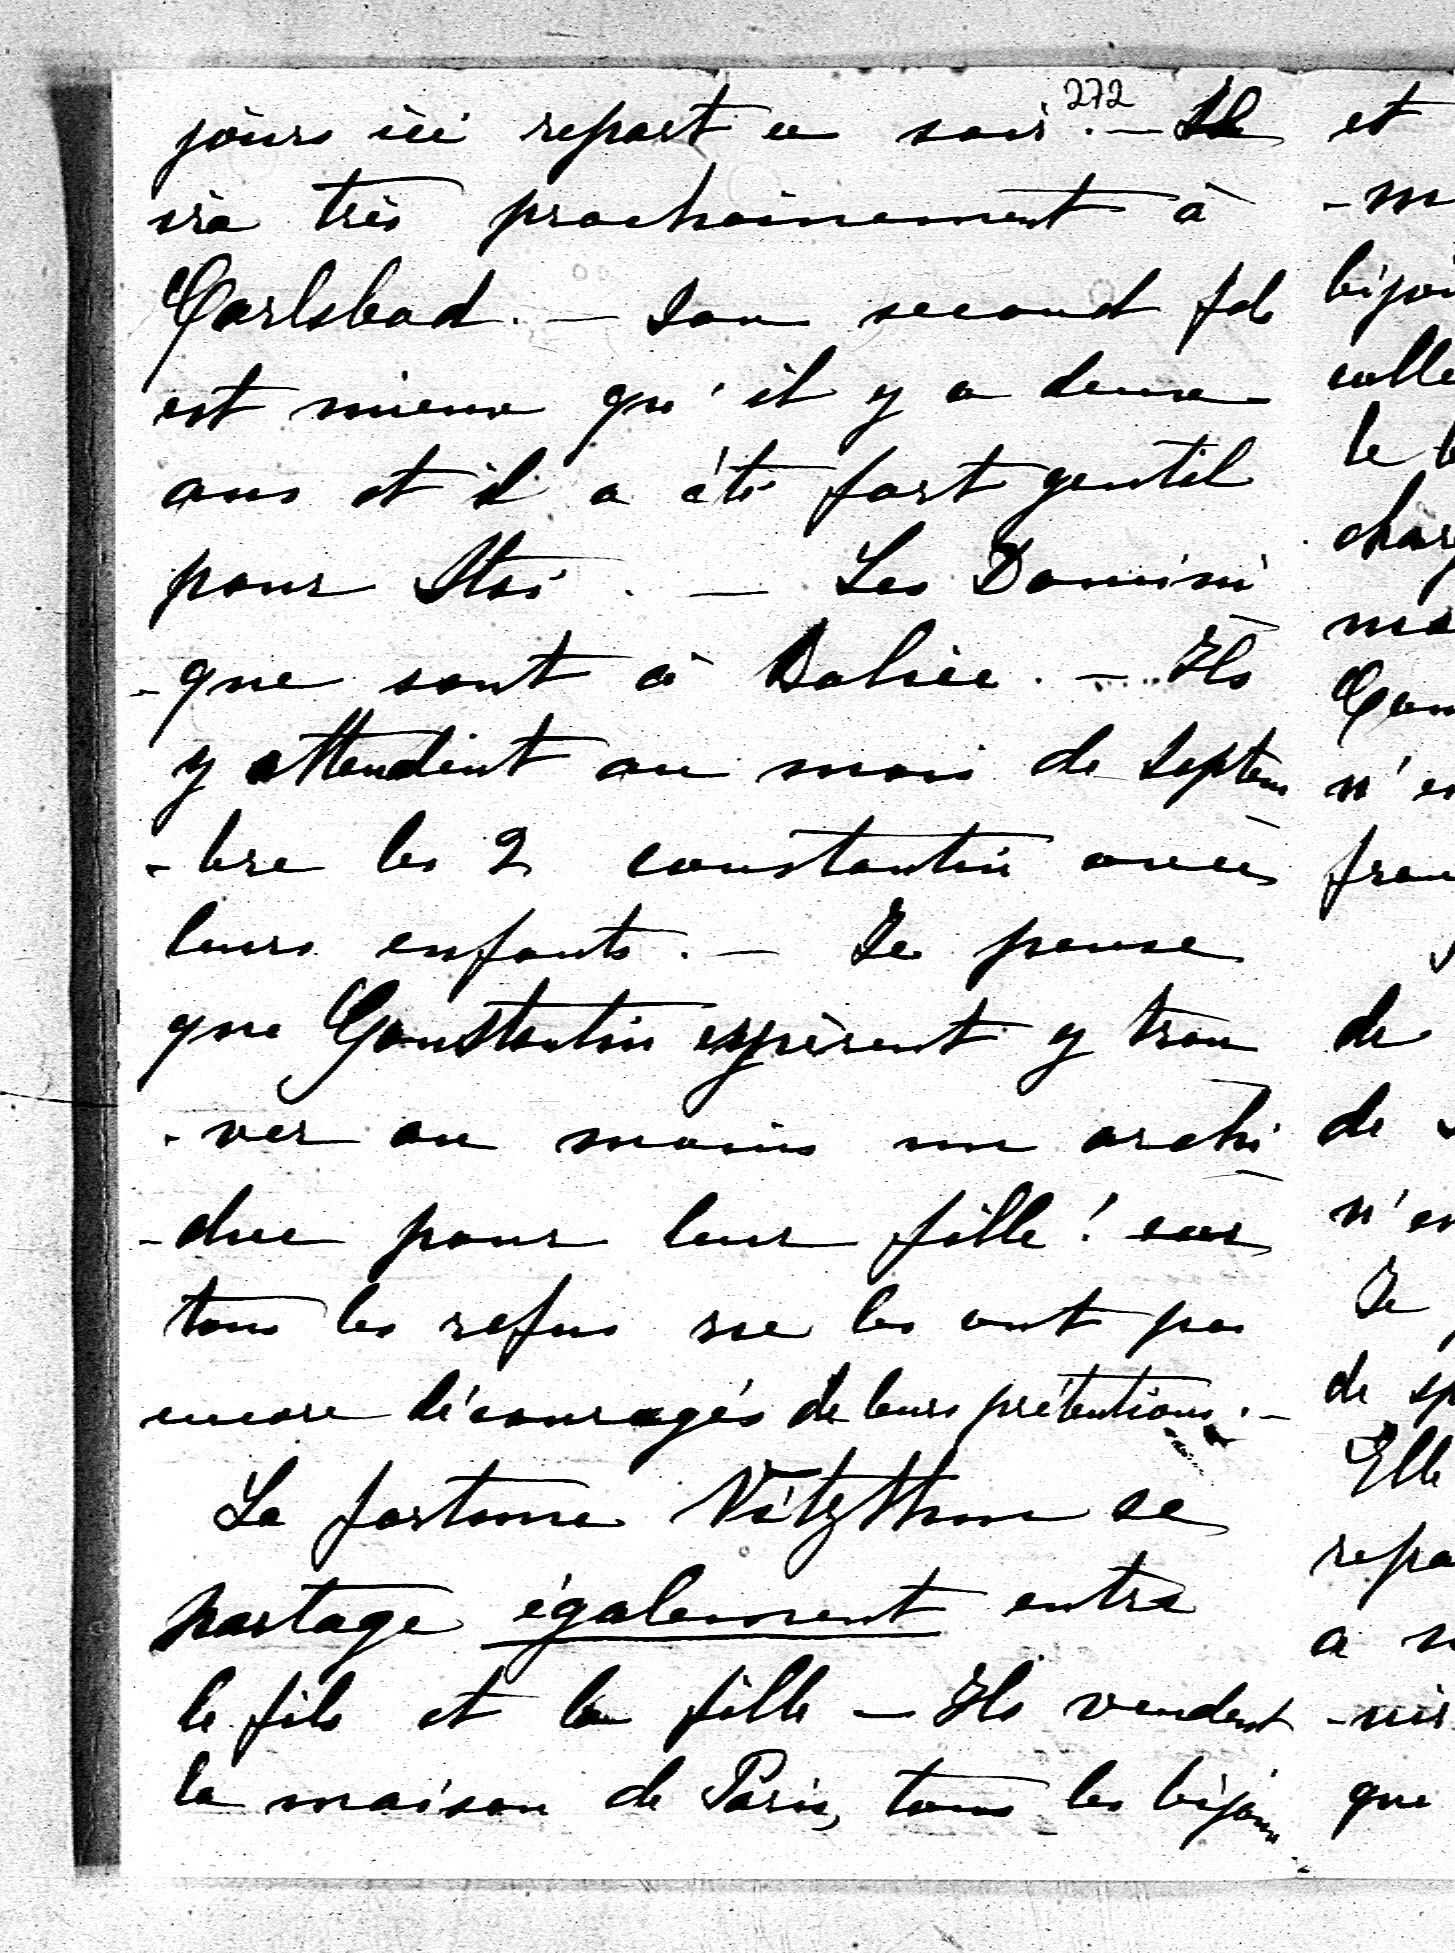 272
jours ici repart ce soir. — Il
ira très prochainement à
Carlsbad. — Son second fils
est mieux qu'il y a deux
ans et il a été fort gentil
pour Stas. — Les Domini
-que sont à Balice. — Ils
y attendent au mois de Septem
-bre les 2 constantin avec
leurs enfants. — Je pense
que Constantin espèrent y trou
-ver au moins un archi
-duc pour leur fille! car
tous les refus ne les ont pas
encore découragés de leurs prétentions. —
La fortune Vitzthum se
partage également entre
le fils et la fille — Ils vendent
la maison de Paris, tous les bijoux
et
-m
bijou
colle
le b
charg
ma
n'en
fran
de
de
n'en
Je
de sp
Elle
repa
a n
-nir
que